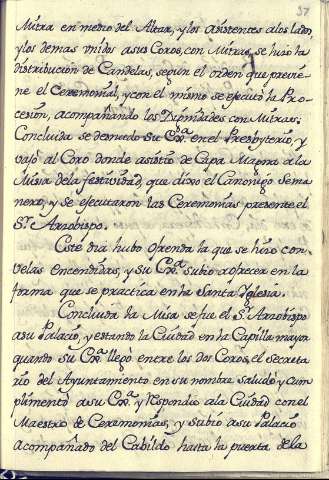 37
Mitra en medio del Altar, y los asistentes a los lado,
y los demas midos a sus Coros, con Mitras, se hizo la
distribucion de Candelas, segun el orden que previe-
ne el Ceremonial, y con el mismo se executó la Pro-
cesion, acompañando los Dignidades con Mitras:
Concluida se desnudo su Exª. en el Presbyterio, y
vajó al Coro donde asistio de Capa Magna a la
Misa de la festividad, que dixo el Canonigo Sema
nero, y se executaron las Ceremonias presente el
Sr. Arzobispo.
Este dia hubo ofrenda la que se hizo con
velas encendidas, y su Exª. subio a ofrecer en la
forma que se practica en ha Santa Yglesia.
Concluida la Misa se fue el Sr. Arzobispo
a su Palacio, y estando la Ciudad en la Capilla mayor
quando su Exª. llegó entre los dos Coros, el secreta
rio del Ayuntamiento en su nombre saludó y cum
plimento a su Exª. y respondio a la Ciudad con el
Maestro de Ceremonias, y subió a su Palacio
acompañado del Cabildo hasta la puerta de la